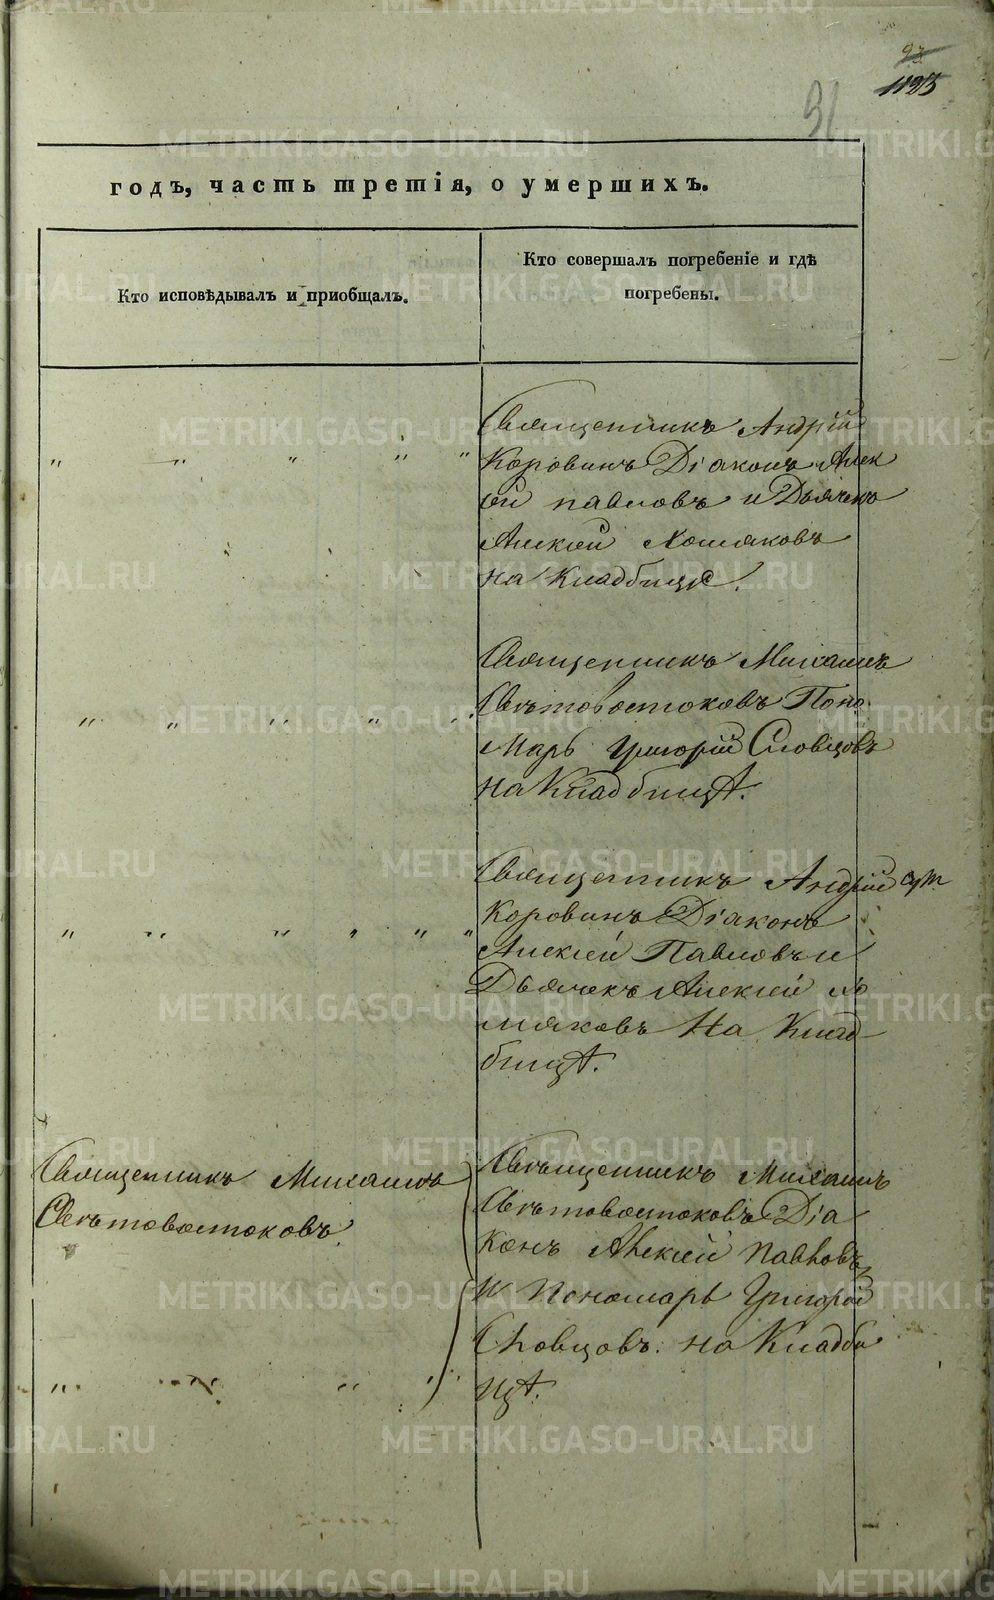 93
1123
91
годъ, часть третія, о умершихъ.
Кто исповѣдывалъ и приобщалъ.
Кто совершалъ погребеніе и гдѣ
погребены.
Священникъ Андрій
Коровинъ Діаконъ Алек
ѣй Павловъ и Дьячекъ
Алексѣй Хомяковъ
на Кладбищѣ.
Священникъ Михаилъ
Свѣтовостоковъ Поно
марь Григорій Словцовъ
на Кладбищѣ.
Священникъ Андрій
Коровинъ Діаконъ
Алексій Павловъ и
Дьячекъ Алексій Хо
мяковъ На Клад
бищѣ.
Священникъ Михаилъ
Свѣтовостоковъ.
Свѣщенникъ Михаилъ
Свѣтовостоковъ Діа
конъ Алексій Павловъ
И Пономарь Григорій
Словцовъ. на Кладби
щѣ.
METRIKI.GASO-URAL.RU